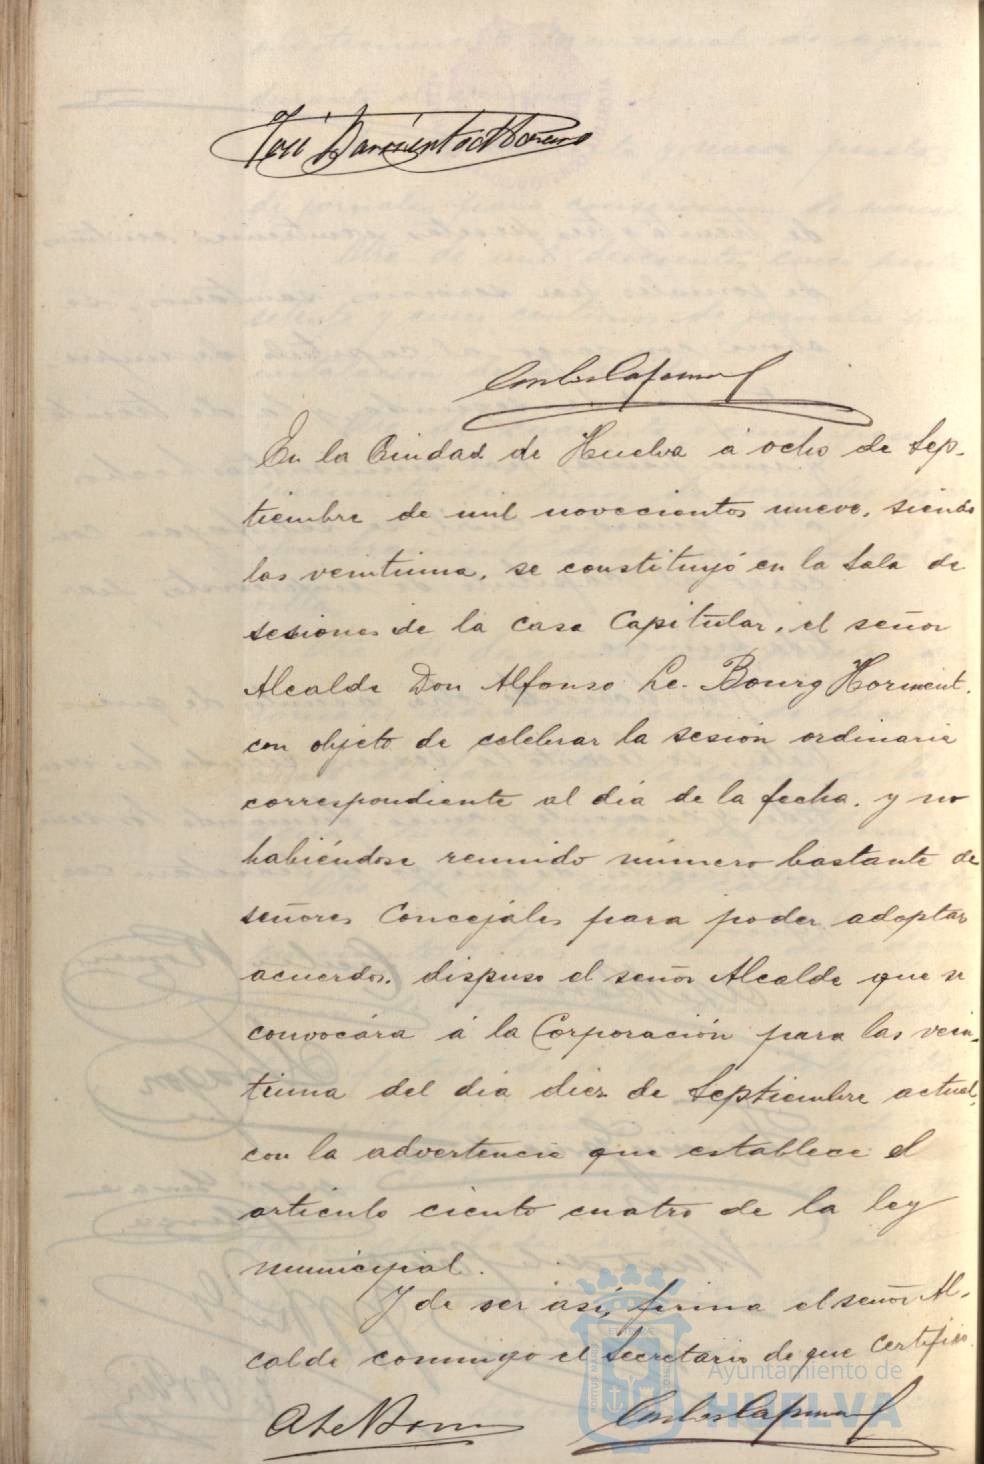 José Barrientos Moreno
En la Ciudad de Huelva á ocho de Sep-
tiembre de mil novecientos nueve, siendo
las veintiuna, se constituyó en la Sala de
sesiones de la Casa Capitular, el señor
Alcalde Don Alfonso Le-Bourg Horment,
con objeto de celebrar la sesión ordinaria
correspondiente al día de la fecha, y no
habiéndose reunido número bastante de
señores Concejales para poder adoptar
acuerdos, dispuso el señor Alcalde que se
convocára á la Corporación para las vein-
tiuna del día diez de Septiembre actual,
con la advertencia que establece el
artículo ciento cuatro de la ley
municipal.
Y de ser así, firma el señor Al-
calde conmigo el Secretario de que certifico.
A Le Bourg
Ayuntamiento de
HUELVA